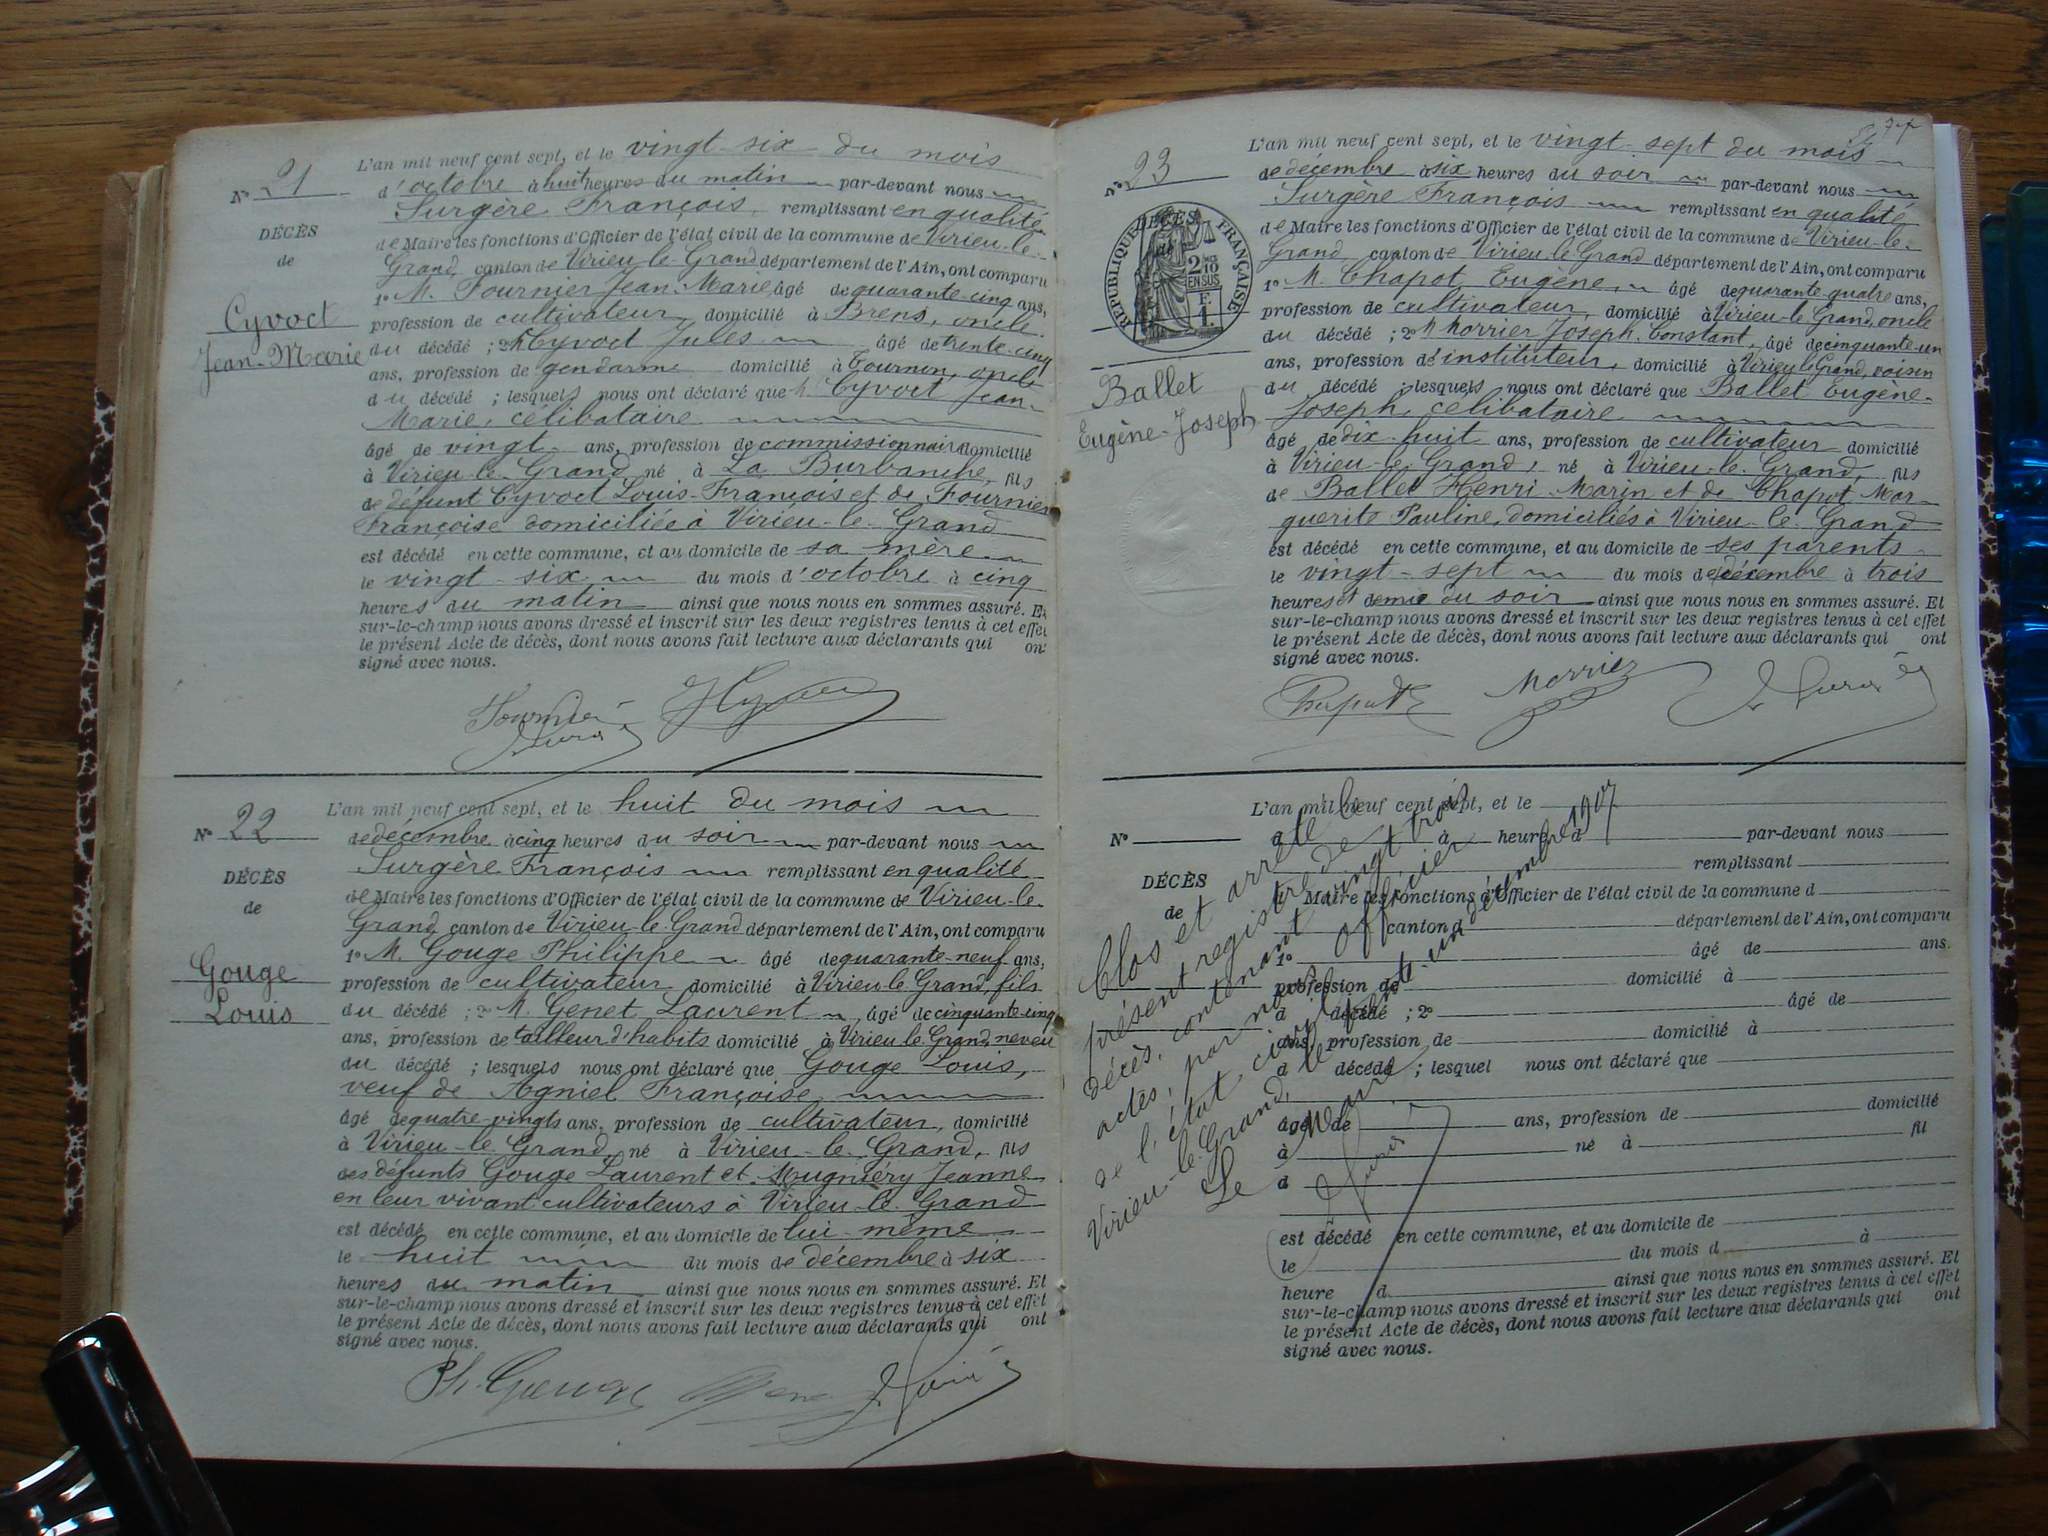 L'an mil neuf cent sept, et le vingt-six du mois
N° 21 d'octobre à huit heures du matin par-devant nous
Surgère François remplissant en qualité
DÉCÈS
de Maire les fonctions d'Officier de l'état civil de la commune de Virieu-le-
de
Grand, canton de Virieu-le-Grand département de l'Ain, ont comparu
1° M. Fournier Jean-Marie, âgé de quarante-cinq ans,
Cyvoct
profession de cultivateur, domicilié à Brens, oncle
Jean-Marie
du décédé ; 2° M. Cyvoct Jules âgé de trente-cinq
ans, profession de gendarme domicilié à Tournon, oncle
du décédé ; lesquels nous ont déclaré que M. Cyvoct Jean-
Marie, célibataire
âgé de vingt ans, profession de commissionnaire domicilié
à Virieu-le-Grand, né à La Burbanche, fils
de défunt Cyvoct Louis-François et de Fournier
Françoise domiciliée à Virieu-le-Grand
est décédé en cette commune, et au domicile de sa mère
le vingt-six du mois d'octobre à cinq
heures du matin ainsi que nous nous en sommes assuré. Et
sur-le-champ nous avons dressé et inscrit sur les deux registres tenus à cet effet
le présent Acte de décès, dont nous avons fait lecture aux déclarants qui ont
signé avec nous.
L'an mil neuf cent sept, et le huit du mois
N° 22 de décembre à cinq heures du soir par-devant nous
Surgère François remplissant en qualité
DÉCÈS
de Maire les fonctions d'Officier de l'état civil de la commune de Virieu-le-
de
Grand, canton de Virieu-le-Grand département de l'Ain, ont comparu
1° M. Gouge Philippe âgé de quarante-neuf ans,
Gouge
profession de cultivateur domicilié à Virieu le Grand, fils
Louis
du décédé ; 2° M. Genet Laurent, âgé de cinquante-cinq
ans, profession de tailleur d'habits domicilié à Virieu le Grand, neveu
du décédé ; lesquels nous ont déclaré que Gouge Louis,
veuf de Agniel Françoise,
âgé de quatre-vingts ans, profession de cultivateur, domicilié
à Virieu-le-Grand, né à Virieu-le-Grand, fils
des défunts Gouge Laurent et Mugniéry Jeanne
en leur vivant cultivateurs à Virieu-le-Grand
est décédé en cette commune, et au domicile de lui-même
le huit du mois de décembre à six
heures du matin ainsi que nous nous en sommes assuré. Et
sur-le-champ nous avons dressé et inscrit sur les deux registres tenus à cet effet
le présent Acte de décès, dont nous avons fait lecture aux déclarants qui ont
signé avec nous.
Ph. Gouge
L'an mil neuf cent sept, et le vingt-sept du mois
N° 23 de décembre à six heures du soir par-devant nous
Surgère François remplissant en qualité
DÉCÈS
de
RÉPUBLIQUE FRANÇAISE
2/10 EN SUS
F. 1.
de Maire les fonctions d'Officier de l'état civil de la commune de Virieu-le-
Grand, canton de Virieu-le-Grand département de l'Ain, ont comparu
1° M. Chapot Eugène, âgé de quarante-quatre ans,
profession de cultivateur, domicilié à Virieu-le-Grand, oncle
du décédé ; 2° M. Morrier Joseph Constant, âgé de cinquante-un
ans, profession d'instituteur, domicilié à Virieu le Grand, voisin
Ballet
du décédé ; lesquels nous ont déclaré que Ballet Eugène-
Eugène-Joseph
Joseph, célibataire
âgé de dix-huit ans, profession de cultivateur domicilié
à Virieu-le-Grand, né à Virieu-le-Grand, fils
de Ballet Henri-Marin et de Chapot Mar-
guerite Pauline, domiciliés à Virieu-le-Grand
est décédé en cette commune, et au domicile de ses parents
le vingt-sept du mois de décembre à trois
heures et demie du soir ainsi que nous nous en sommes assuré. Et
sur-le-champ nous avons dressé et inscrit sur les deux registres tenus à cet effet
le présent Acte de décès, dont nous avons fait lecture aux déclarants qui ont
signé avec nous.
Morrier
L'an mil neuf cent sept, et le
N° d à heure d par-devant nous
remplissant
DÉCÈS
de
Maire les fonctions d'Officier de l'état civil de la commune d
canton d département de l'Ain, ont comparu
1° âgé de ans.
profession de domicilié à
d décédé ; 2° âgé de
ans, profession de domicilié à
d décédé ; lesquel nous ont déclaré que
âgé de ans, profession de domicilié
à né à fil
d
est décédé en cette commune, et au domicile de
le du mois d à
heure d ainsi que nous nous en sommes assuré. Et
sur-le-champ nous avons dressé et inscrit sur les deux registres tenus à cet effet
le présent Acte de décès, dont nous avons fait lecture aux déclarants qui ont
signé avec nous.
Clos et arrêté le
présent registre de
décès, contenant vingt trois
actes, par nous Officier
de l'état civil
Virieu-le-Grand, le trente-un décembre 1907
Le Maire